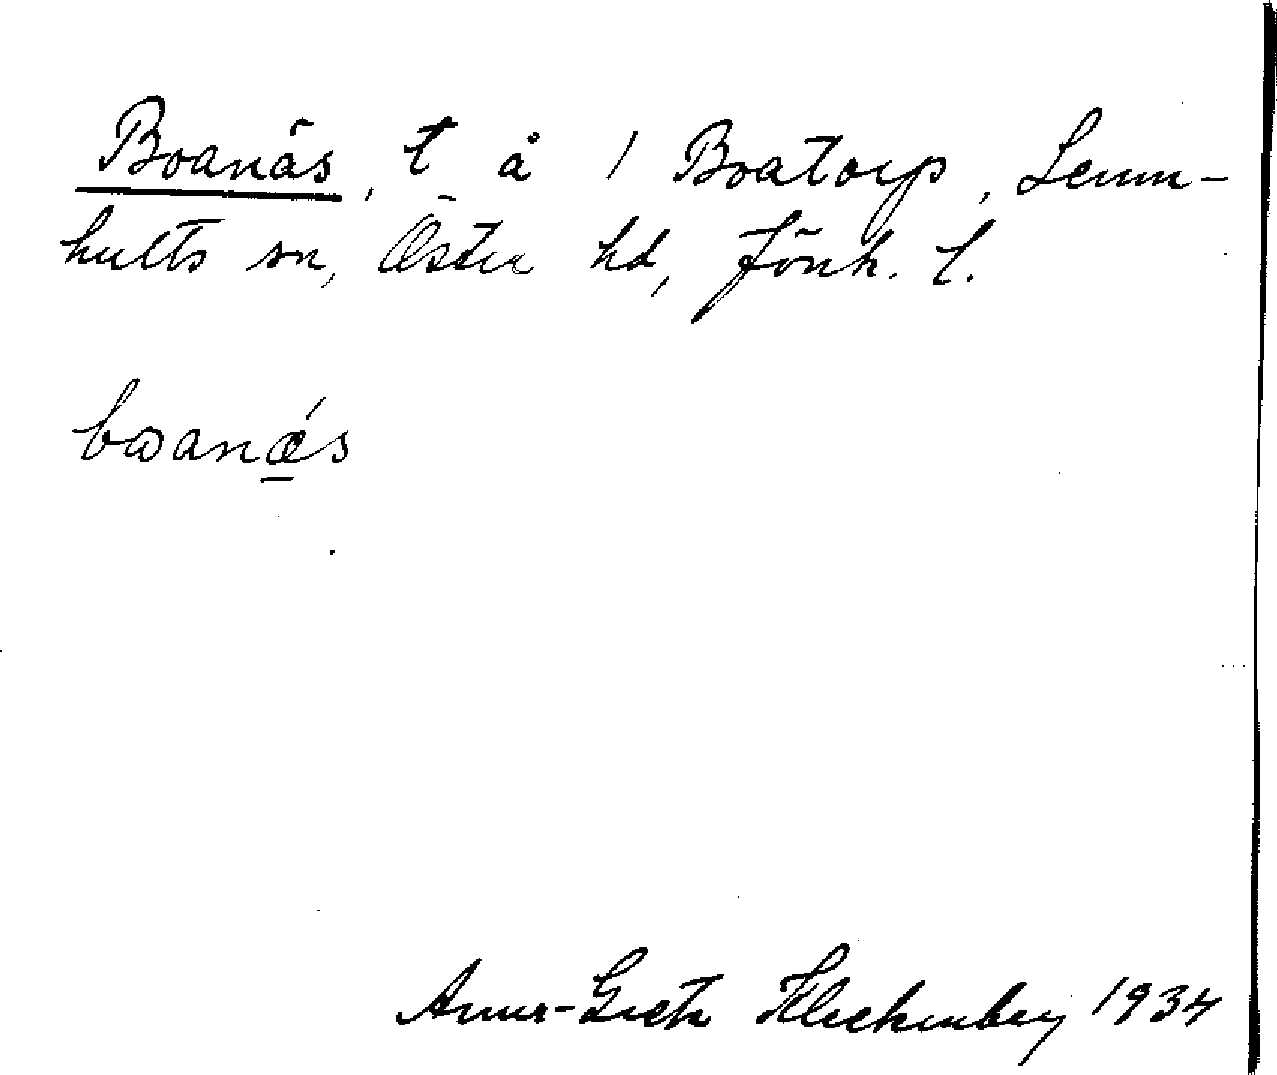 Boanäs, t å 1 Boatorp, Lemn-
hults sn, Östra hd, Jönk. l.
bωanǽs
Anna-Greta Hleckenberg 1934